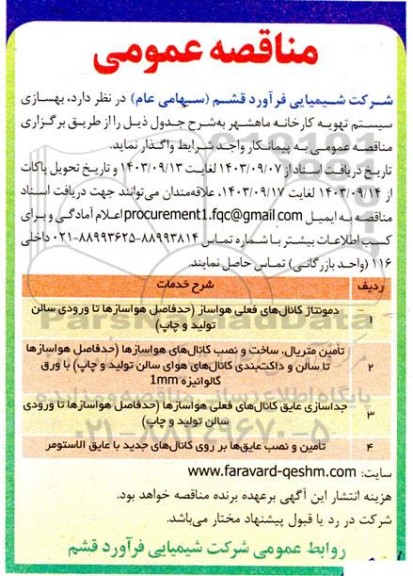 مناقصه عمومی
شرکت شیمیایی فرآورد قشم (سهامی عام) در نظر دارد، بهسازی
سیستم تهویه کارخانه ماهشهر به‌شرح جدول ذیل را از طریق برگزاری
مناقصه عمومی به پیمانکار واجد شرایط واگذار نماید.
تاریخ دریافت اسناد از ۱۴۰۳/۰۹/۰۷ لغایت ۱۴۰۳/۰۹/۱۳ و تاریخ تحویل پاکات
از ۱۴۰۳/۰۹/۱۴ لغایت ۱۴۰۳/۰۹/۱۷، علاقه‌مندان می‌توانند جهت دریافت اسناد
مناقصه به ایمیل procurement1.fqc@gmail.com اعلام آمادگی و برای
کسب اطلاعات بیشتر با شماره تماس ۸۸۹۹۳۸۱۴-۸۸۹۹۳۶۲۵-۰۲۱ داخلی
۱۱۶ (واحد بازرگانی) تماس حاصل نمایند.
ردیف شرح خدمات
۱ دمونتاژ کانال‌های فعلی هواساز (حدفاصل هواسازها تا ورودی سالن
تولید و چاپ)
۲ تأمین متریال، ساخت و نصب کانال‌های هواسازها (حدفاصل هواسازها
تا سالن و داکت‌بندی کانال‌های هوای سالن تولید و چاپ) با ورق
گالوانیزه 1mm
۳ جداسازی عایق کانال‌های فعلی هواسازها (حدفاصل هواسازها تا ورودی
سالن تولید و چاپ)
۴ تامین و نصب عایق‌ها بر روی کانال‌های جدید با عایق الاستومر
سایت: www.faravard-qeshm.com
هزینه انتشار این آگهی برعهده برنده مناقصه خواهد بود.
شرکت در رد یا قبول پیشنهاد مختار می‌باشد.
روابط عمومی شرکت شیمیایی فرآورد قشم